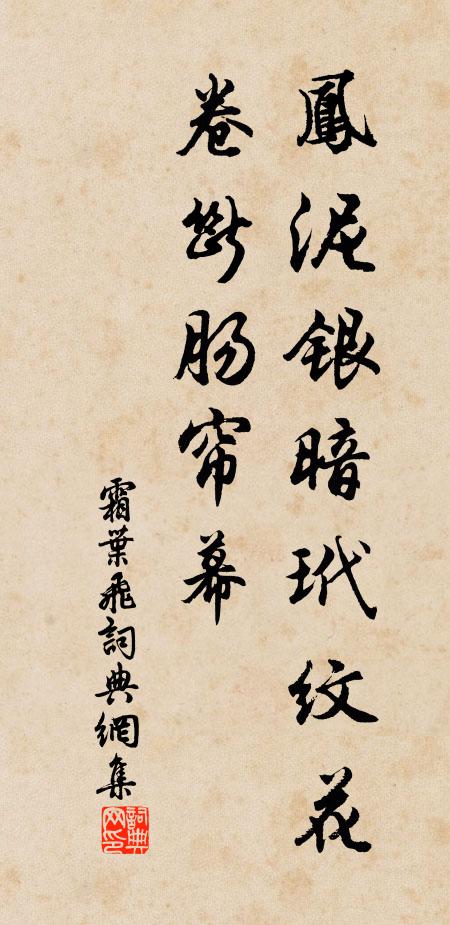 鳳泥銀暗玳紋花
卷断肠帘幕
霜葉飛詞典網集
詞典网印